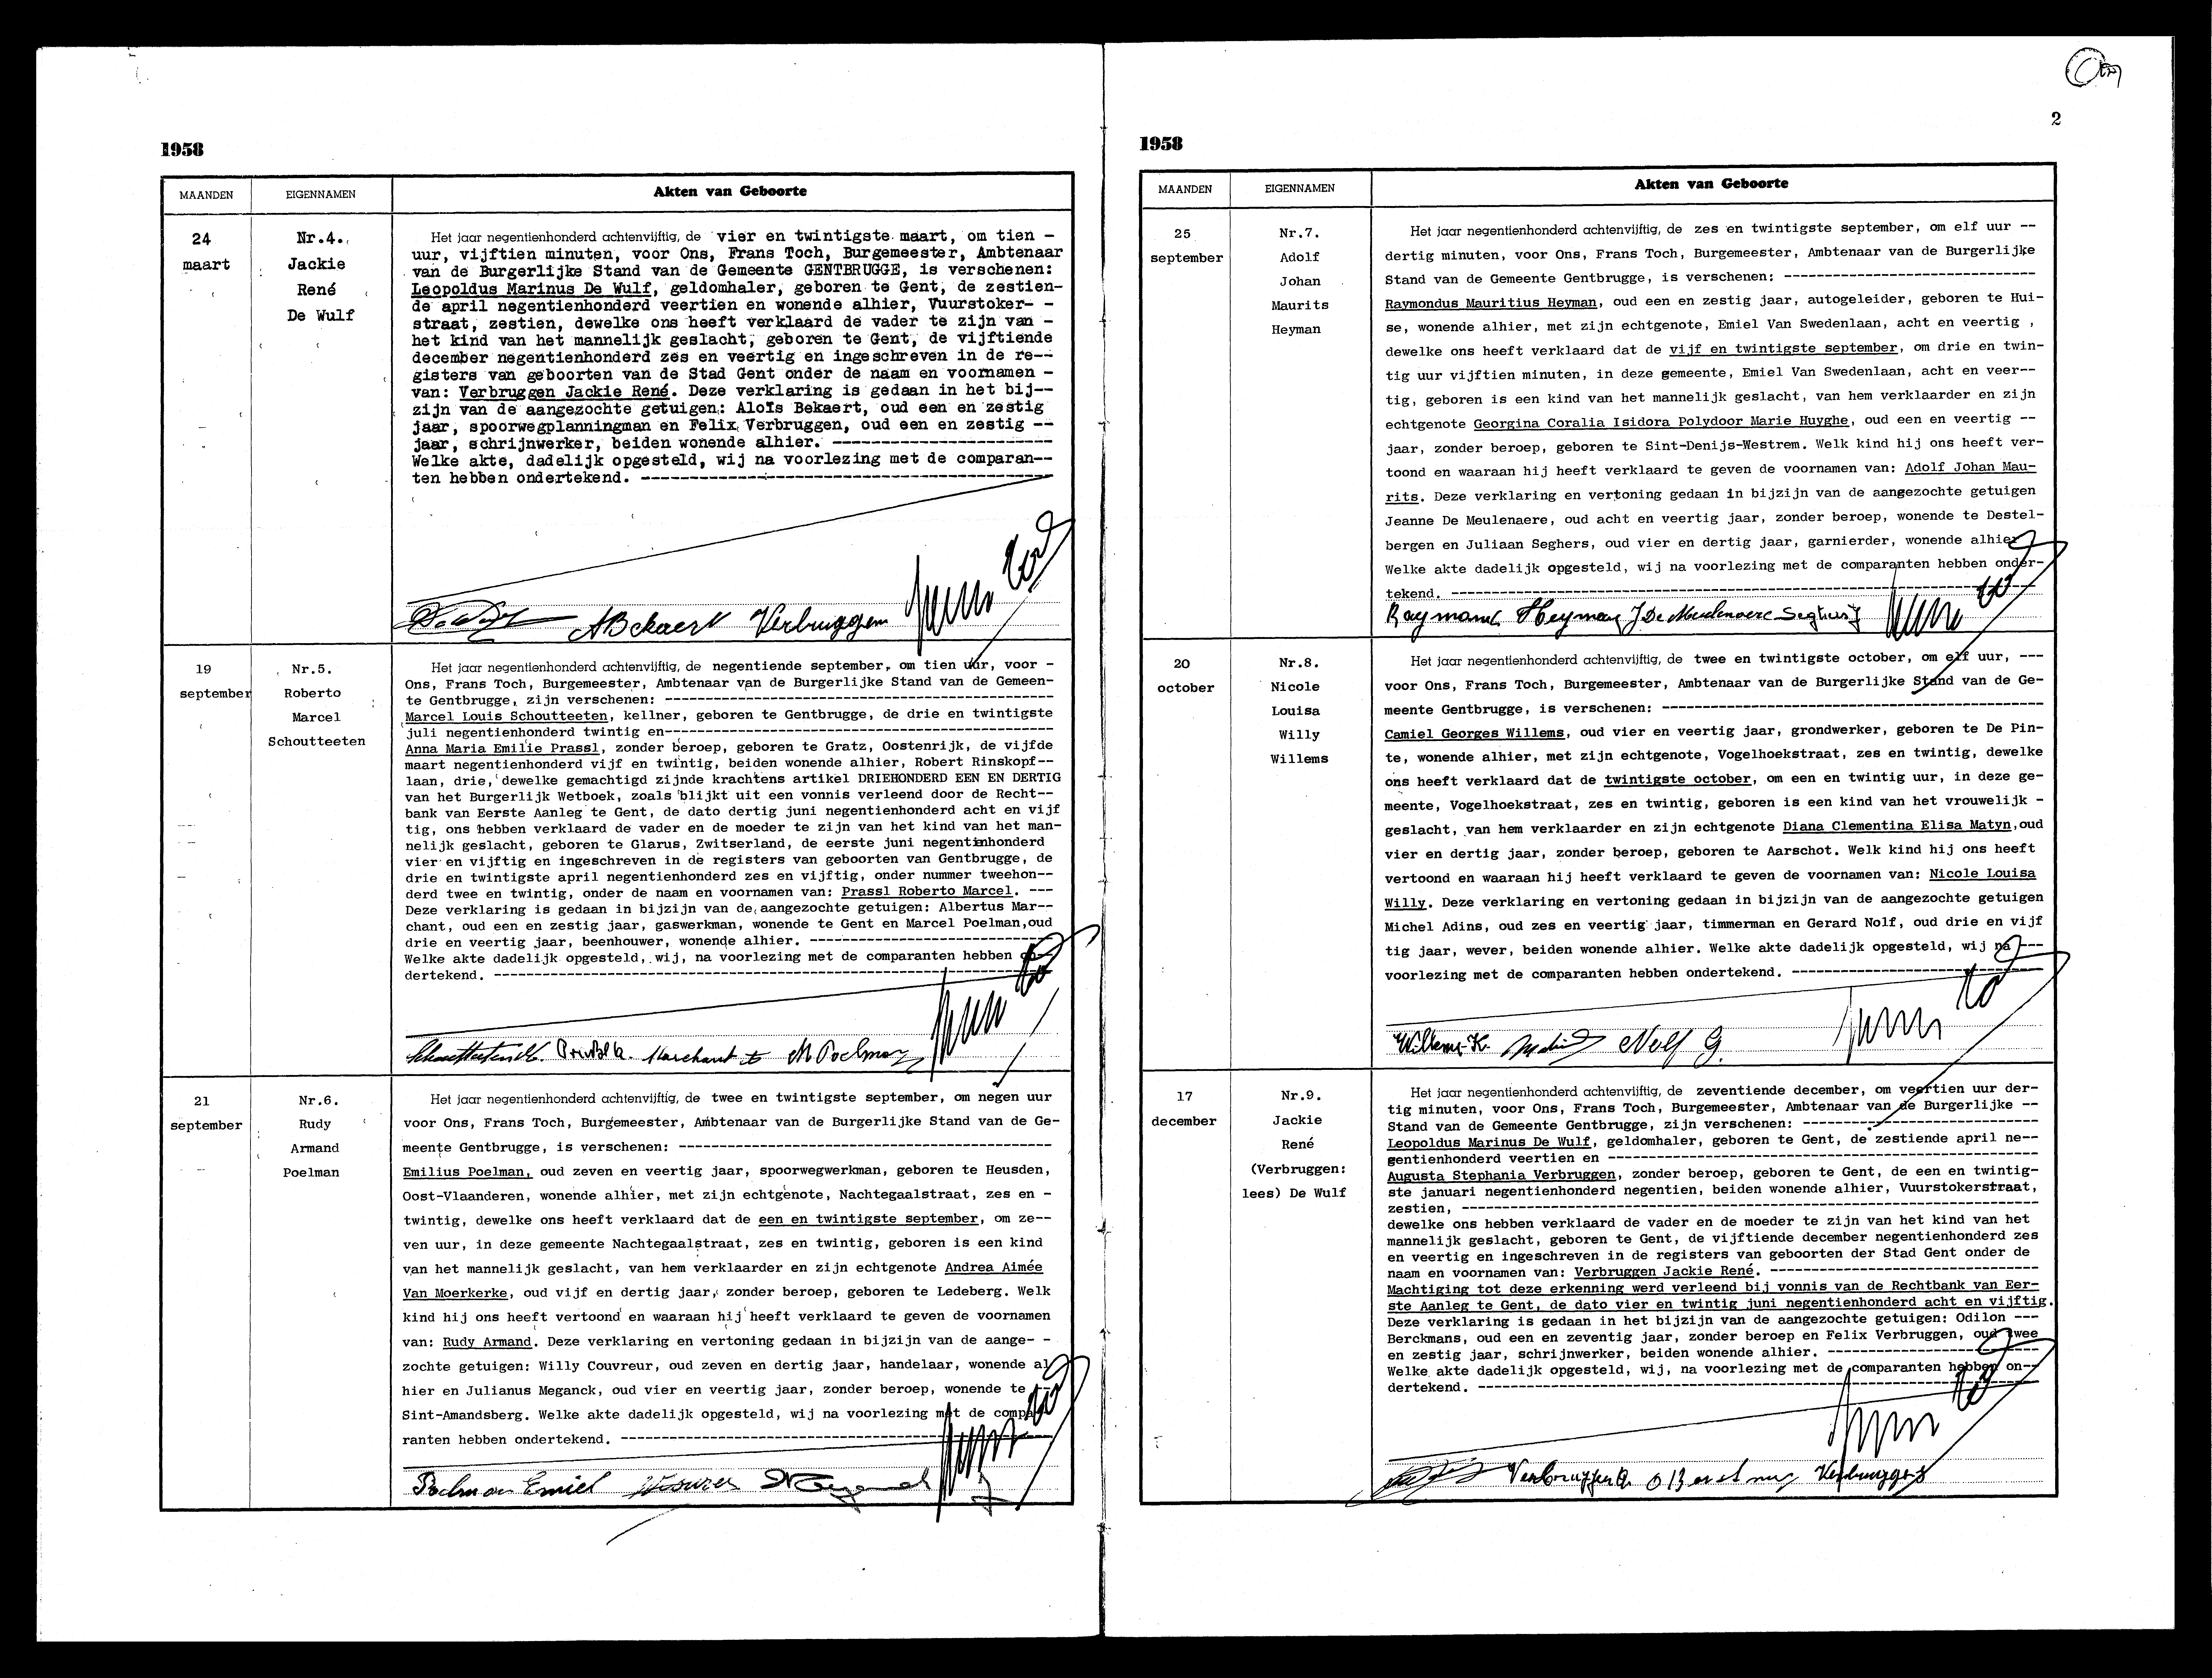 1958
MAANDEN EIGENNAMEN Akten van Geboorte
24
maart
Nr.4.
Jackie
René
De Wulf
Het jaar negentienhonderd achtenvijftig, de vier en twintigste maart, om tien -
uur, vijftien minuten, voor Ons, Frans Toch, Burgemeester, Ambtenaar
van de Burgerlijke Stand van de Gemeente GENTBRUGGE, is verschenen:
Leopoldus Marinus De Wulf, geldomhaler, geboren te Gent, de zestien-
de april negentienhonderd veertien en wonende alhier, Vuurstoker- -
straat, zestien, dewelke ons heeft verklaard de vader te zijn van -
het kind van het mannelijk geslacht, geboren te Gent, de vijftiende
december negentienhonderd zes en veertig en ingeschreven in de re--
gisters van geboorten van de Stad Gent onder de naam en voornamen -
van: Verbruggen Jackie René. Deze verklaring is gedaan in het bij--
zijn van de aangezochte getuigen: Aloïs Bekaert, oud een en zestig
jaar, spoorwegplanningman en Felix Verbruggen, oud een en zestig --
jaar, schrijnwerker, beiden wonende alhier. ---
Welke akte, dadelijk opgesteld, wij na voorlezing met de comparan--
ten hebben ondertekend. ---
ABekaert Verbruggen
19
september
Nr.5.
Roberto
Marcel
Schoutteeten
Het jaar negentienhonderd achtenvijftig, de negentiende september, om tien uur, voor -
Ons, Frans Toch, Burgemeester, Ambtenaar van de Burgerlijke Stand van de Gemeen-
te Gentbrugge, zijn verschenen: ---
Marcel Louis Schoutteeten, kellner, geboren te Gentbrugge, de drie en twintigste
juli negentienhonderd twintig en---
Anna Maria Emilie Prassl, zonder beroep, geboren te Gratz, Oostenrijk, de vijfde
maart negentienhonderd vijf en twintig, beiden wonende alhier, Robert Rinskopf--
laan, drie, dewelke gemachtigd zijnde krachtens artikel DRIEHONDERD EEN EN DERTIG
van het Burgerlijk Wetboek, zoals blijkt uit een vonnis verleend door de Recht--
bank van Eerste Aanleg te Gent, de dato dertig juni negentienhonderd acht en vijf
tig, ons hebben verklaard de vader en de moeder te zijn van het kind van het man-
nelijk geslacht, geboren te Glarus, Zwitserland, de eerste juni negentienhonderd
vier en vijftig en ingeschreven in de registers van geboorten van Gentbrugge, de
drie en twintigste april negentienhonderd zes en vijftig, onder nummer tweehon--
derd twee en twintig, onder de naam en voornamen van: Prassl Roberto Marcel. ---
Deze verklaring is gedaan in bijzijn van de aangezochte getuigen: Albertus Mar--
chant, oud een en zestig jaar, gaswerkman, wonende te Gent en Marcel Poelman,oud
drie en veertig jaar, beenhouwer, wonende alhier. ---
Welke akte dadelijk opgesteld, wij, na voorlezing met de comparanten hebben on-
dertekend. ---
Prassl A. Marchant M Poelman
21
september
Nr.6.
Rudy
Armand
Poelman
Het jaar negentienhonderd achtenvijftig, de twee en twintigste september, om negen uur
voor Ons, Frans Toch, Burgemeester, Ambtenaar van de Burgerlijke Stand van de Ge-
meente Gentbrugge, is verschenen: ---
Emilius Poelman, oud zeven en veertig jaar, spoorwegwerkman, geboren te Heusden,
Oost-Vlaanderen, wonende alhier, met zijn echtgenote, Nachtegaalstraat, zes en -
twintig, dewelke ons heeft verklaard dat de een en twintigste september, om ze--
ven uur, in deze gemeente Nachtegaalstraat, zes en twintig, geboren is een kind
van het mannelijk geslacht, van hem verklaarder en zijn echtgenote Andrea Aimée
Van Moerkerke, oud vijf en dertig jaar, zonder beroep, geboren te Ledeberg. Welk
kind hij ons heeft vertoond en waaraan hij heeft verklaard te geven de voornamen
van: Rudy Armand. Deze verklaring en vertoning gedaan in bijzijn van de aange- -
zochte getuigen: Willy Couvreur, oud zeven en dertig jaar, handelaar, wonende al
hier en Julianus Meganck, oud vier en veertig jaar, zonder beroep, wonende te --
Sint-Amandsberg. Welke akte dadelijk opgesteld, wij na voorlezing met de compa-
ranten hebben ondertekend. ---
Poelman Emiel
2
1958
MAANDEN EIGENNAMEN Akten van Geboorte
25
september
Nr.7.
Adolf
Johan
Maurits
Heyman
Het jaar negentienhonderd achtenvijftig, de zes en twintigste september, om elf uur --
dertig minuten, voor Ons, Frans Toch, Burgemeester, Ambtenaar van de Burgerlijke
Stand van de Gemeente Gentbrugge, is verschenen: ---
Raymondus Mauritius Heyman, oud een en zestig jaar, autogeleider, geboren te Hui-
se, wonende alhier, met zijn echtgenote, Emiel Van Swedenlaan, acht en veertig ,
dewelke ons heeft verklaard dat de vijf en twintigste september, om drie en twin-
tig uur vijftien minuten, in deze gemeente, Emiel Van Swedenlaan, acht en veer--
tig, geboren is een kind van het mannelijk geslacht, van hem verklaarder en zijn
echtgenote Georgina Coralia Isidora Polydoor Marie Huyghe, oud een en veertig --
jaar, zonder beroep, geboren te Sint-Denijs-Westrem. Welk kind hij ons heeft ver-
toond en waaraan hij heeft verklaard te geven de voornamen van: Adolf Johan Mau-
rits. Deze verklaring en vertoning gedaan in bijzijn van de aangezochte getuigen
Jeanne De Meulenaere, oud acht en veertig jaar, zonder beroep, wonende te Destel-
bergen en Juliaan Seghers, oud vier en dertig jaar, garnierder, wonende alhier
Welke akte dadelijk opgesteld, wij na voorlezing met de comparanten hebben onder-
tekend. ---
Raymond Heyman J De Meulenaere Seghers J
20
october
Nr.8.
Nicole
Louisa
Willy
Willems
Het jaar negentienhonderd achtenvijftig, de twee en twintigste october, om elf uur, ---
voor Ons, Frans Toch, Burgemeester, Ambtenaar van de Burgerlijke Stand van de Ge-
meente Gentbrugge, is verschenen: ---
Camiel Georges Willems, oud vier en veertig jaar, grondwerker, geboren te De Pin-
te, wonende alhier, met zijn echtgenote, Vogelhoekstraat, zes en twintig, dewelke
ons heeft verklaard dat de twintigste october, om een en twintig uur, in deze ge-
meente, Vogelhoekstraat, zes en twintig, geboren is een kind van het vrouwelijk -
geslacht, van hem verklaarder en zijn echtgenote Diana Clementina Elisa Matyn,oud
vier en dertig jaar, zonder beroep, geboren te Aarschot. Welk kind hij ons heeft
vertoond en waaraan hij heeft verklaard te geven de voornamen van: Nicole Louisa
Willy. Deze verklaring en vertoning gedaan in bijzijn van de aangezochte getuigen
Michel Adins, oud zes en veertig jaar, timmerman en Gerard Nolf, oud drie en vijf
tig jaar, wever, beiden wonende alhier. Welke akte dadelijk opgesteld, wij na ---
voorlezing met de comparanten hebben ondertekend. ---
Willems K. Nolf G.
17
december
Nr.9.
Jackie
René
(Verbruggen:
lees) De Wulf
Het jaar negentienhonderd achtenvijftig, de zeventiende december, om veertien uur der-
tig minuten, voor Ons, Frans Toch, Burgemeester, Ambtenaar van de Burgerlijke --
Stand van de Gemeente Gentbrugge, zijn verschenen: ---
Leopoldus Marinus De Wulf, geldomhaler, geboren te Gent, de zestiende april ne--
gentienhonderd veertien en ---
Augusta Stephania Verbruggen, zonder beroep, geboren te Gent, de een en twintig-
ste januari negentienhonderd negentien, beiden wonende alhier, Vuurstokerstraat,
zestien, ---
dewelke ons hebben verklaard de vader en de moeder te zijn van het kind van het
mannelijk geslacht, geboren te Gent, de vijftiende december negentienhonderd zes
en veertig en ingeschreven in de registers van geboorten der Stad Gent onder de
naam en voornamen van: Verbruggen Jackie René. ---
Machtiging tot deze erkenning werd verleend bij vonnis van de Rechtbank van Eer-
ste Aanleg te Gent, de dato vier en twintig juni negentienhonderd acht en vijftig.
Deze verklaring is gedaan in het bijzijn van de aangezochte getuigen: Odilon ---
Berckmans, oud een en zeventig jaar, zonder beroep en Felix Verbruggen, oud twee
en zestig jaar, schrijnwerker, beiden wonende alhier. ---
Welke akte dadelijk opgesteld, wij, na voorlezing met de comparanten hebben on--
dertekend. ---
Verbruggen A. Verbruggen